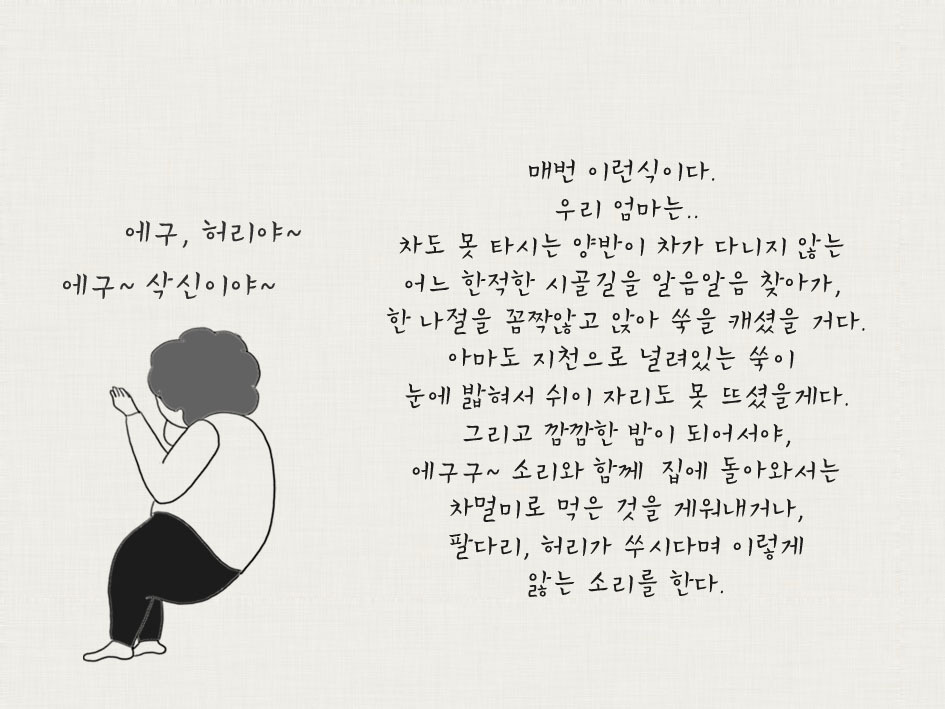 에구, 허리야~
에구~ 삭신이야~
매번 이런식이다.
우리 엄마는..
차도 못 타시는 양반이 차가 다니지 않는
어느 한적한 시골길을 알음알음 찾아가,
한 나절을 꼼짝않고 앉아 쑥을 캐셨을 거다.
아마도 지천으로 널려있는 쑥이
눈에 밟혀서 쉬이 자리도 못 뜨셨을게다.
그리고 깜깜한 밤이 되어서야,
에구구~ 소리와 함께 집에 돌아와서는
차멀미로 먹은 것을 게워내거나,
팔다리, 허리가 쑤시다며 이렇게
앓는 소리를 한다.